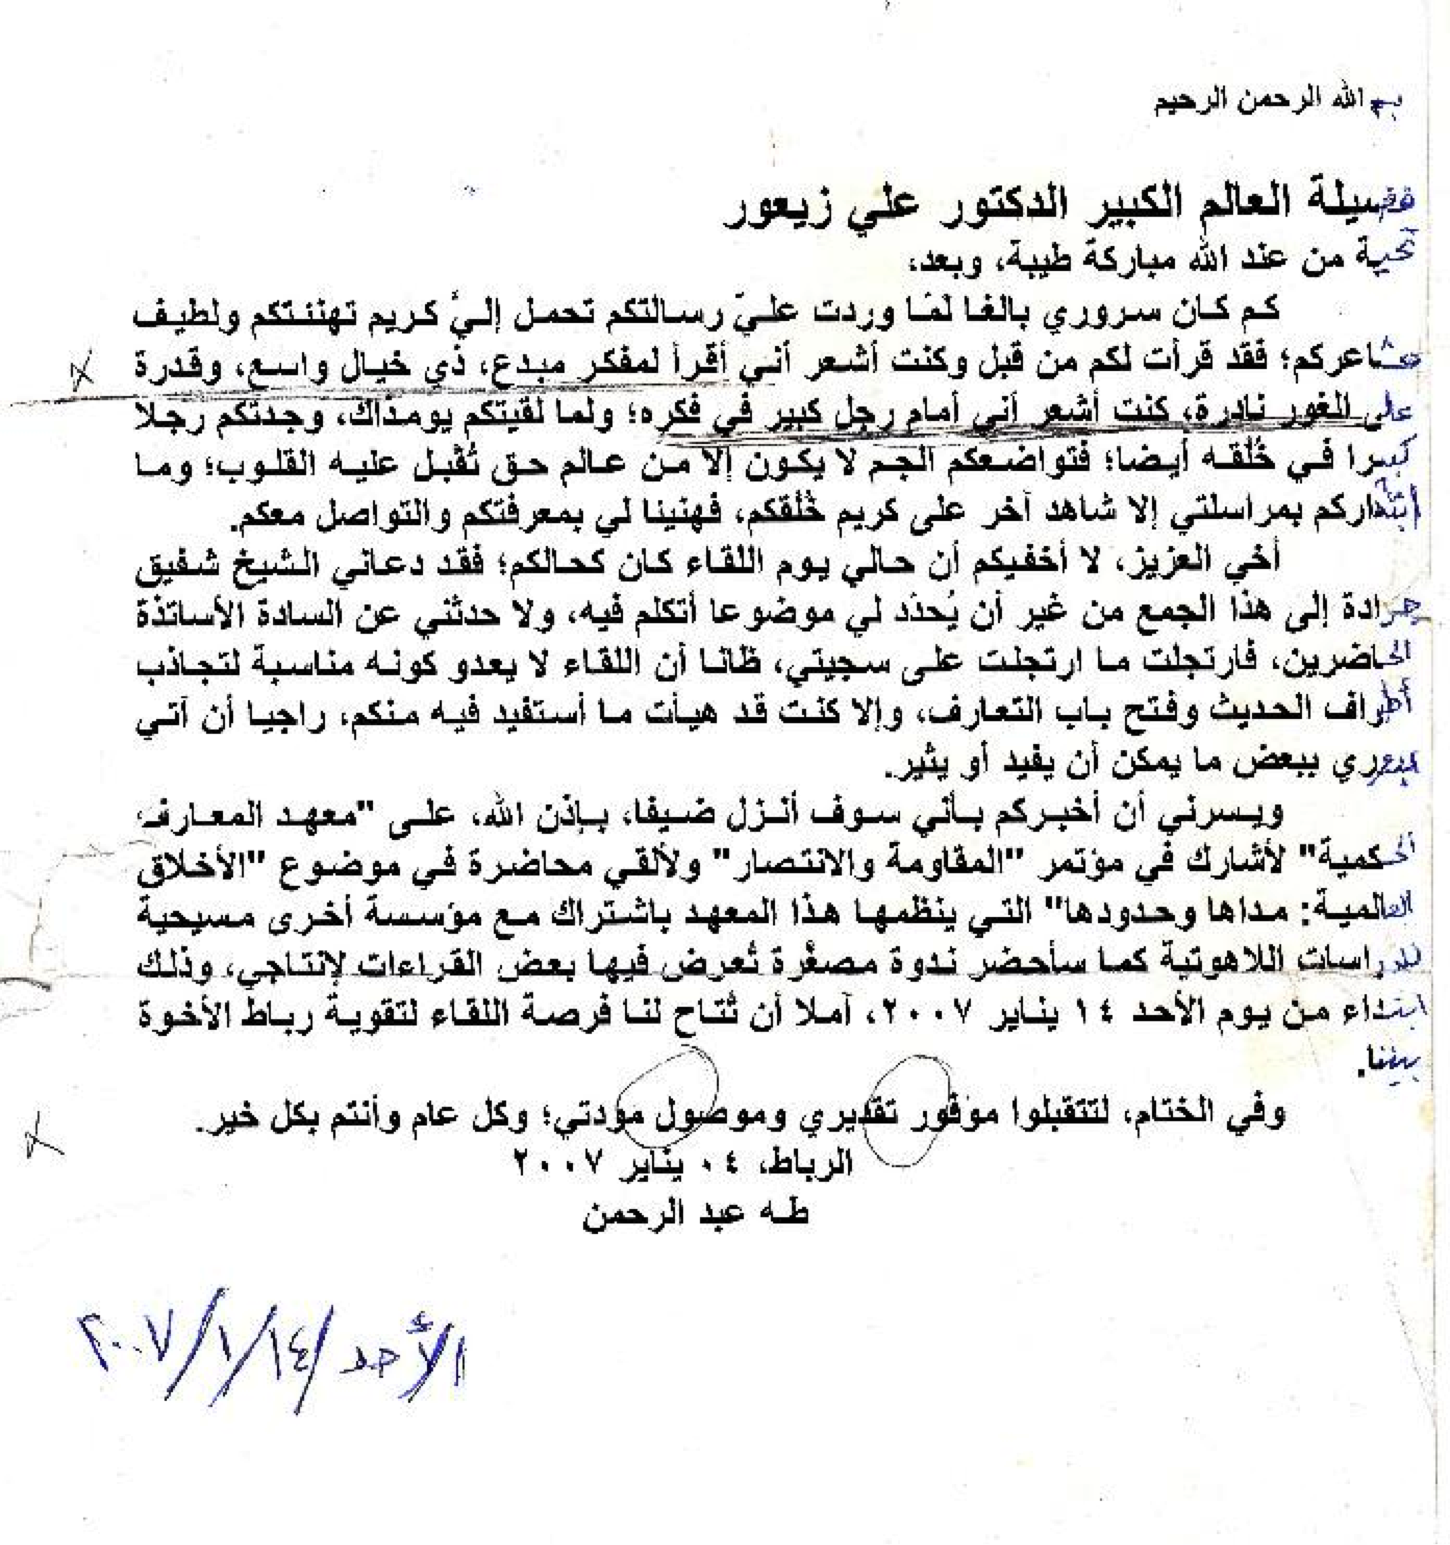 بسم الله الرحمن الرحيم
فضيلة العالم الكبير الدكتور علي زيعور
تحية من عند الله مباركة طيبة، وبعد،
كم كان سروري بالغا لمّا وردت عليّ رسالتكم تحمل إليّ كريم تهنئتكم ولطيف
مشاعركم؛ فقد قرأت لكم من قبل وكنت أشعر أني أقرأ لمفكر مبدع، ذي خيال واسع، وقدرة
على الغور نادرة، كنت أشعر أني أمام رجل كبير في فكره؛ ولما لقيتكم يومذاك، وجدتكم رجلا
كبيرا في خُلقه أيضا؛ فتواضعكم الجم لا يكون إلا من عالم حق تُقبل عليه القلوب؛ وما
ابتداركم بمراسلتي إلا شاهد آخر على كريم خُلُقكم، فهنيئا لي بمعرفتكم والتواصل معكم.
أخي العزيز، لا أخفيكم أن حالي يوم اللقاء كان كحالكم؛ فقد دعاني الشيخ شفيق
جرادة إلى هذا الجمع من غير أن يُحدّد لي موضوعا أتكلم فيه، ولا حدثني عن السادة الأساتذة
الحاضرين، فارتجلت ما ارتجلت على سجيتي، ظانا أن اللقاء لا يعدو كونه مناسبة لتجاذب
أطراف الحديث وفتح باب التعارف، وإلا كنت قد هيأت ما أستفيد فيه منكم، راجيا أن آتي
بدوري ببعض ما يمكن أن يفيد أو يثير.
ويسرني أن أخبركم بأني سوف أنزل ضيفا، بإذن الله، على "معهد المعارف
الحكمية" لأشارك في مؤتمر "المقاومة والانتصار" ولألقي محاضرة في موضوع "الأخلاق
العالمية: مداها وحدودها" التي ينظمها هذا المعهد باشتراك مع مؤسسة أخرى مسيحية
للدراسات اللاهوتية كما سأحضر ندوة مصغّرة تُعرض فيها بعض القراءات لإنتاجي، وذلك
ابتداء من يوم الأحد ١٤ يناير ٢٠٠٧، آملا أن تُتاح لنا فرصة اللقاء لتقوية رباط الأخوة
بيننا.
وفي الختام، لتتقبلوا موفور تقديري وموصول مودتي؛ وكل عام وأنتم بكل خير.
الرباط، ٠٤ يناير ٢٠٠٧
طه عبد الرحمن
الأحد/١٤/١/٢٠٠٧